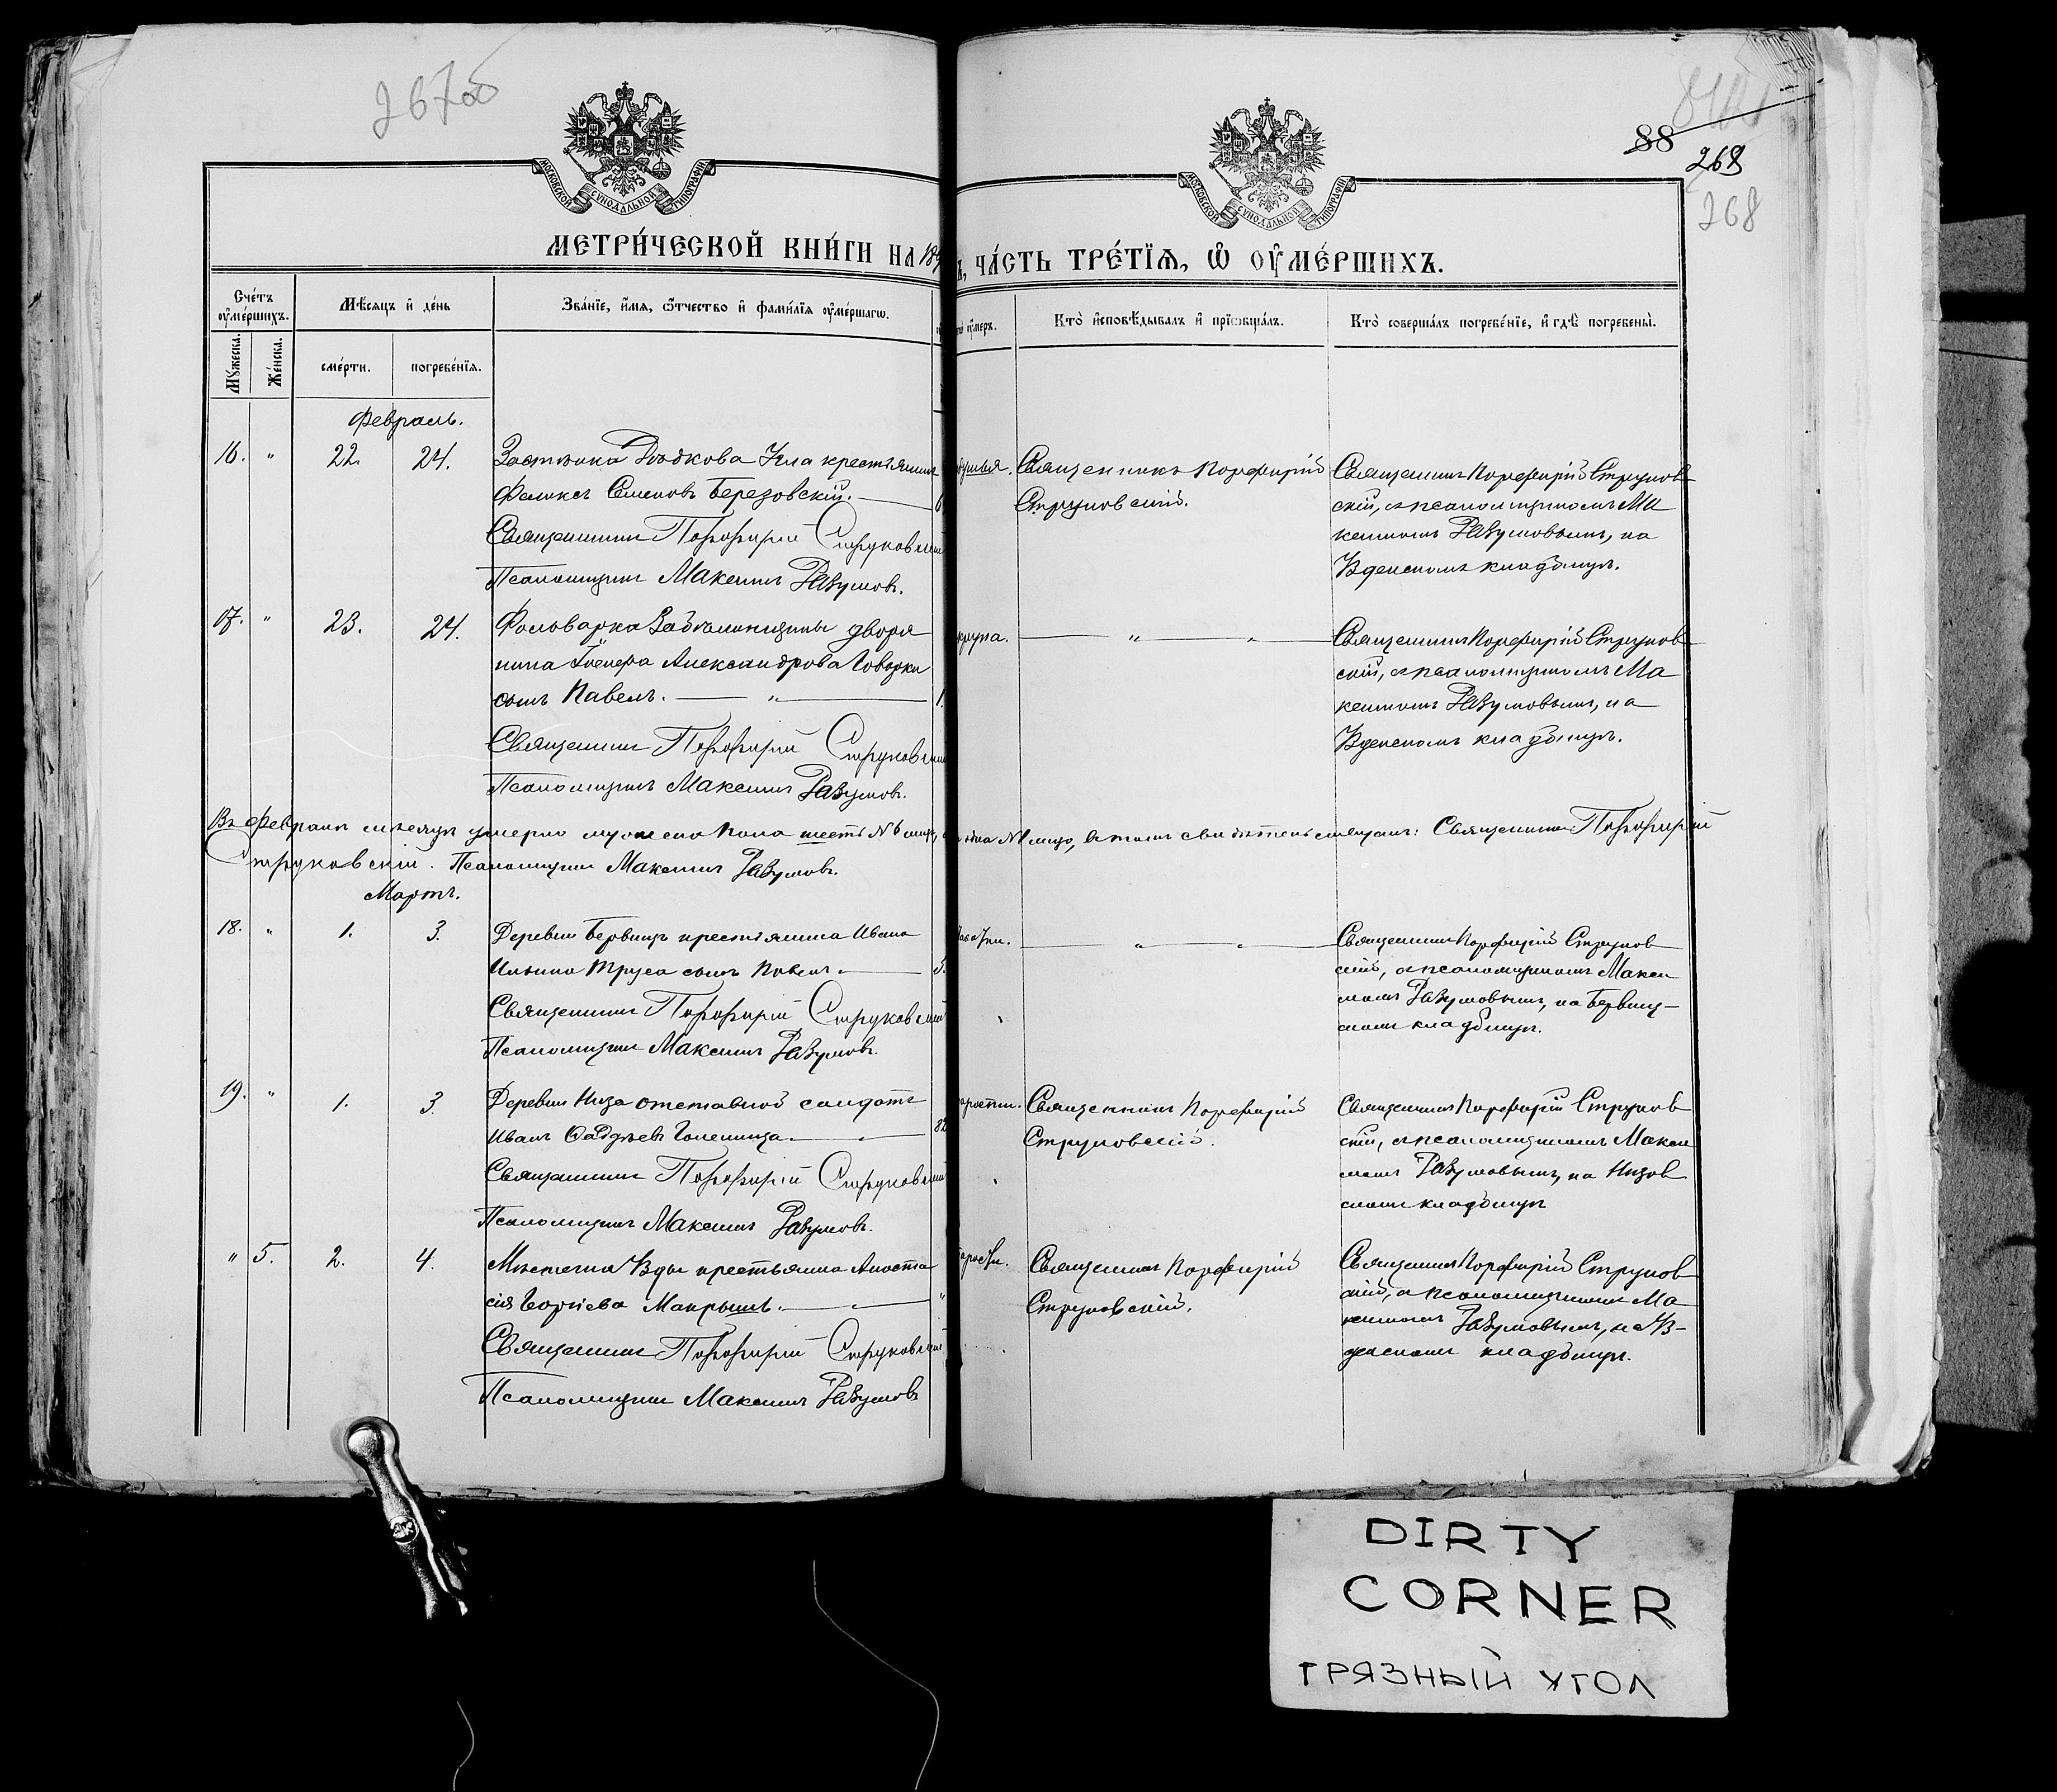 267об
88
268
268
МОСКОВСКОЙ СУНОДАЛЬНОЙ ТИПОГРАФІИ
МОСКОВСКОЙ СУНОДАЛЬНОЙ ТИПОГРАФІИ
МЕТРИ́ЧЕСКОЙ КНИ́ГИ НА 189
ЧА́СТЬ ТРЕ́ТЇѦ, Ѡ ОУМЕ́РШИХЪ.
Сче́тъ оумершихъ.
Мѣ́сяцъ и де́нь
Зва́нїе, и́мѧ, ѻтчество и фами́лїѧ оуме́ршагѡ.
оумеръ.
Кто̀ исповѣ́дывалъ и прїѡбща́лъ.
Кто̀ соверша́лъ погребе́нїе, и гдѣ̀ погребены̀.
Мꙋжеска.
Же́нска.
сме́рти.
погребе́нїѧ.
Февраль.
16. " 22. 24.
Застѣнка Дѣдкова Угла крестьянинъ
Феликсъ Семеновъ Березовскій.
Священникъ Порфирій Струковскій
Псаломщикъ Максимъ Разумовъ.
Священникъ Порфирій
Струковскій.
Священникъ Порфирій Струков
скій, съ псаломщикомъ Ма
ксимомъ Разумовымъ, на
Узденскомъ кладбищѣ.
17. " 23. 24.
Фольварка дворя
нина Александрова
сынъ Павелъ. — " — 1.
Священникъ Порфирій Струковскій
Псаломщикъ Максимъ Разумовъ.
крупа. — " — " —
Священникъ Порфирій Струков
скій, съ псаломщикомъ Ма
ксимомъ Разумовымъ, на
Узденскомъ кладбищѣ.
Въ Февралѣ мѣсяцѣ умерло мужеска пола шесть № 6 лицъ, № 1 лицо, въ томъ свидѣтельствуемъ: Священникъ Порфирій
Струковскій. Псаломщикъ Максимъ Разумовъ.
Мартъ.
18. " 1. 3.
Деревни крестьянина Ивана
Ильина Труса сынъ Павелъ.
Священникъ Порфирій Струковскій
Псаломщикъ Максимъ Разумовъ.
— " — " —
Священникъ Порфирій Струков
скій, съ псаломщикомъ Макси
момъ Разумовымъ, на
скомъ кладбищѣ.
19. " 1. 3.
Деревни Низа отставной солдатъ
Иванъ 82
Священникъ Порфирій Струковскій
Псаломщикъ Максимъ Разумовъ.
Священникъ Порфирій
Струковскій.
Священникъ Порфирій Струков
скій, съ псаломщикомъ Макси
момъ Разумовымъ, на Низов
скомъ кладбищѣ
" 5. 2. 4.
Мѣстечка Узды крестьянка Анаста
сія
Священникъ Порфирій Струковскій
Псаломщикъ Максимъ Разумовъ
Священникъ Порфирій
Струковскій.
Священникъ Порфирій Струков
скій, съ псаломщикомъ Ма
ксимомъ Разумовымъ, на Уз-
денскомъ кладбищѣ.
DIRTY
CORNER
ГРЯЗНЫЙ УГОЛ